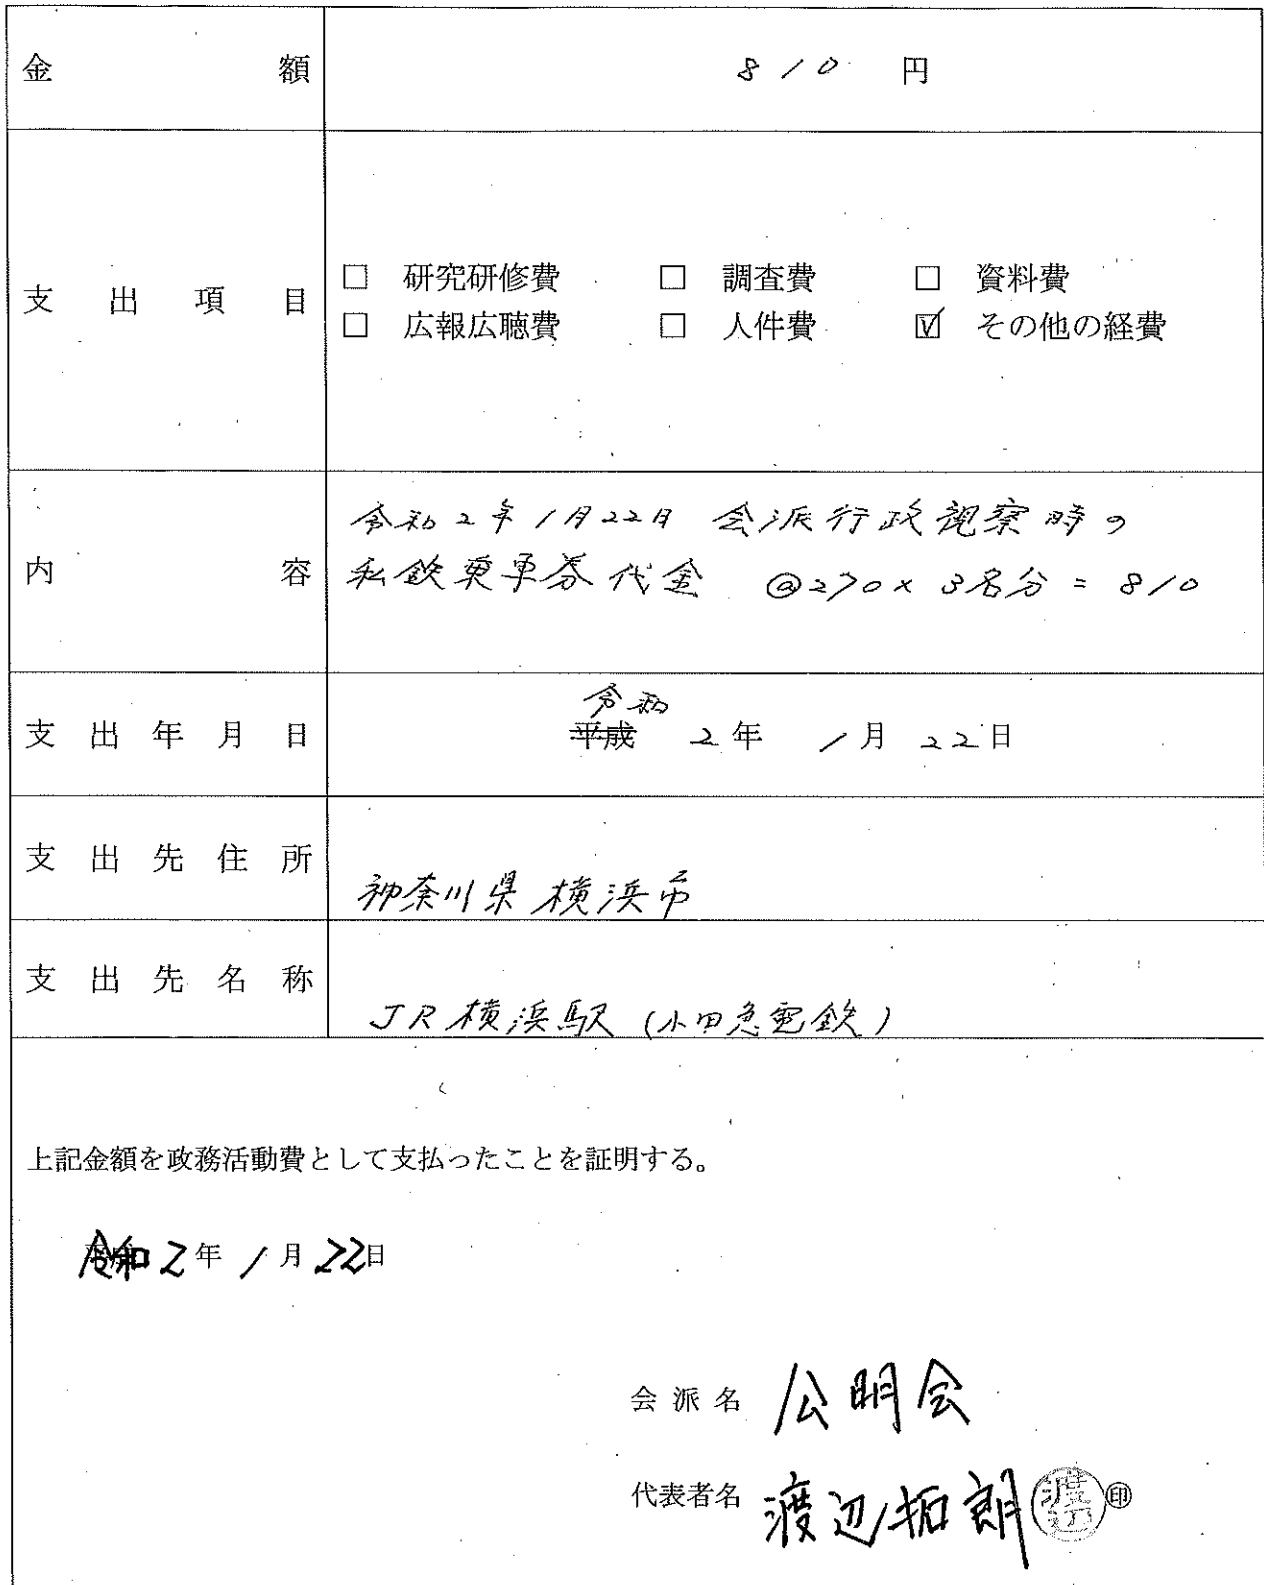 金額 810 円
支出項目
□ 研究研修費 □ 調査費 □ 資料費
□ 広報広聴費 □ 人件費 ☑ その他の経費
内容
令和2年1月22日 会派行政視察時の
私鉄乗車券代金 @270×3名分=810
令和
支出年月日 平成 2年 1月 22日
支出先住所 神奈川県横浜市
支出先名称 JR横浜駅(小田急電鉄)
上記金額を政務活動費として支払ったことを証明する。
令和2年1月22日
会派名 公明会
代表者名 渡辺拓朗 渡辺 ㊞